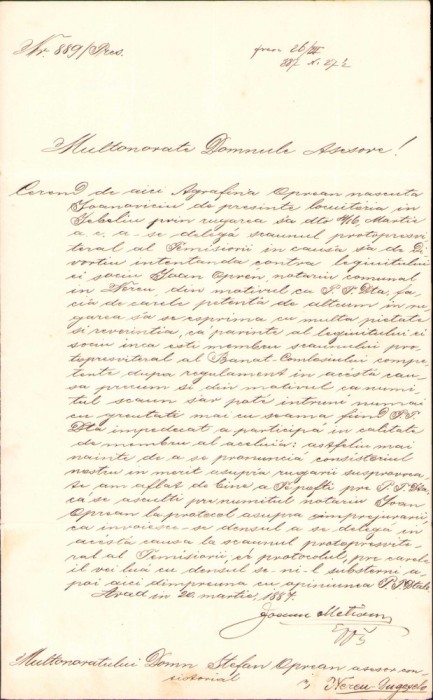 Nr. 889/Pres.
Multonorate Domnule Asesore!
Cerend de aice Agrafina Oprean nascuta
Ioanoviciu de presinte locuitoria in
Jebeliu prin rugarea sa dto 4/16 Martie
a. c. a-se delegá scaunul protopresvi-
teral al Temisiorii in causa sa de di-
vortiu intentanda contra legiuitului
ei sociu Ioan Opren notariu comunal
in Nereu din motivul ca P. T. Dta, fa-
cia de carele petenta de altcum in ru-
garea sa se esprima cu multa pietate
si reverintia, ca parinte al legiuitului ei
sociu inca este membru scaunului pro-
topresviteral al Banat-Comlosiului compe-
tente dupa regulament in acésta cau-
sa precum si din motivul ca numi-
tul scaun sar poté intruni numai
cu greutate mai cu seama fiind P. T.
Dta impedecat a participá in calitate
de membru al aceluia: astfeliu mai
nainte de a se pronunciá consistoriul
nostru in merit asupra rugarii susprovoca-
te am aflat de bine a Te pofti pre P. T. Dta,
ca se asculti pre numitul notariu Ioan
Oprean la protocol asupra impregiurarii,
ca invoiesce-se densul a se delegá in
acésta causa la scaunul protopresvite-
ral al Temisiorii, éra protocolul, pre carele
il vei luá cu densul se ni-l substerni a-
poi aici dimpreuna cu opiniunea P. T. Dtale.
Arad in 20 martie, 1887.
Ioann Metianu
Eppu
Multonoratului Domn Stefan Oprean asesor con-
sistorial
in Nereu